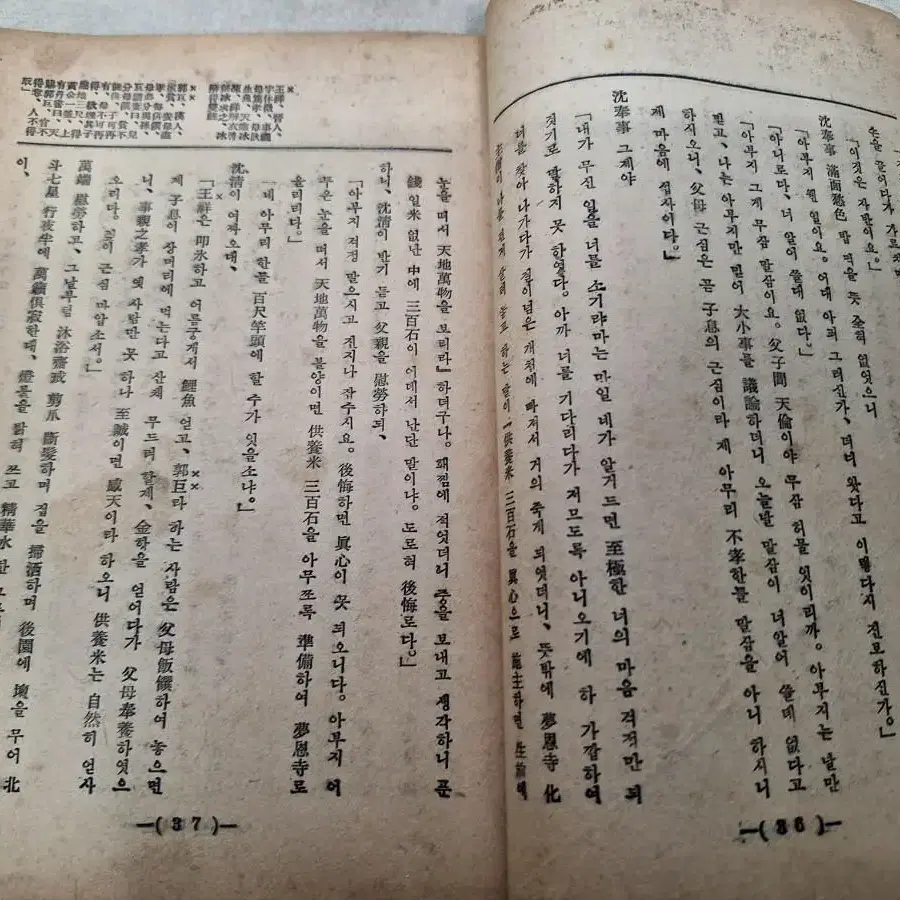 손을 끌어다가 가르치며
「이것은 자반이요。」
沈奉事 滿面愁色 밥 먹을 뜻 全혀 없엇으니
「아부지 웬 일이요。 어대 아퍼 그러신가、 더듸 왓다고 이렇다시 진노하신가。」
「아니로다、 너 알어 쓸대 없다。」
「아부지 그게 무삼 말삼이요。 父子間 天倫이야 무삼 허물 잇이리까。 아부지는 날만
믿고、 나는 아부지만 믿어 大小事를 議論하더니 오늘날 말삼이 너알어 쓸데 없다고
하시오니、 父母 근심은 곧 子息의 근심이라 제 아무리 不孝한들 말삼을 아니 하시니
제 마음에 섭사이다。」
沈奉事 그제야
「내가 무신 일을 너를 소기랴마는 만일 네가 알거드면 至極한 너의 마음 걱정만 되
겟기로 말하지 못 한엿다。 아까 너를 기다리다가 저므도록 아니오기에 하 가깝하여
너를 찾아 나가다가 길이넘은 개천에 빠저서 거의 죽게 되엿더니、 뜻밖에 夢恩寺 化
主僧이 나를 살려 놓고 하는 말이 『供養米 三百石을 眞心으로 施主하면 生前에
—( 36 )—
王祥、晋人、
郭巨、漢人、
눈을 떠서 天地萬物을 보리라』 하더구나。 홰낌에 적엇더니 중을 보내고 생각하니 푼
錢 일米 없난 中에 三百石이 어데서 난단 말이냐。 도로혀 後悔로다。」
하니、 沈淸이 반기 듣고 父親을 慰勞하되、
「아부지 걱정 말으시고 진지나 잡수지요。 後悔하면 眞心이 못 되오니다。 아부지 어
두운 눈을 떠서 天地萬物을 볼양이면 供養米 三百石을 아무쪼록 準備하여 夢恩寺로
올리리다。」
「네 아무리 한들 百尺竿頭에 할 수가 잇을소냐。」
沈淸이 여짜오대、
「王祥은 叩氷하고 어름궁게서 鯉魚 얻고、 郭巨라 하는 사람은 父母飯饌하여 놓으면
제 子息이 상머리에 먹는다고 산채 무드려 할제、 金항을 얻어다가 父母奉養하엿으
니、 事親之孝가 옛 사람만 못 하나 至誠이면 感天이라 하오니 供養米는 自然히 얻사
오리다。 깊이 근심 마압소서。」
萬端 慰勞하고、 그날부텀 沐浴齋戒 剪爪 斷髮하며 집을 掃洒하며 後園에 壇을 무어 北
斗七星 行夜半에 萬籟俱寂한대、 燈불을 밝혀 쓰고 精華水 한
이、
—( 37 )—